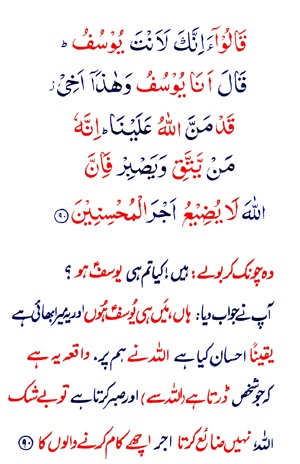 قَالُوْٓا ءَاِنَّكَ لَاَنْتَ يُوْسُفُ ؕ
قَالَ اَنَا يُوْسُفُ وَهٰذَاۤ اَخِیْ ز
قَدْ مَنَّ اللّٰهُ عَلَيْنَا ؕ اِنَّهٗ
مَنْ يَّتَّقِ وَيَصْبِرْ فَاِنَّ
اللّٰهَ لَا يُضِيْعُ اَجْرَ الْمُحْسِنِيْنَ ﴿۹۰﴾
وہ چونک کر بولے: ہیں! کیا تم ہی یوسفؑ ہو ؟
آپ نے جواب دیا: ہاں، میں ہی یُوسفؑ ہُوں اور یہ میرا بھائی ہے
یقیناً احسان کیا ہے اللہ نے ہم پر۔ واقعہ یہ ہے
کہ جو شخص ڈرتا ہے (اللہ سے) اور صبر کرتا ہے تو بے شک
اللہ نہیں ضائع کرتا اجر اچھے کام کرنے والوں کا ﴿۹۰﴾